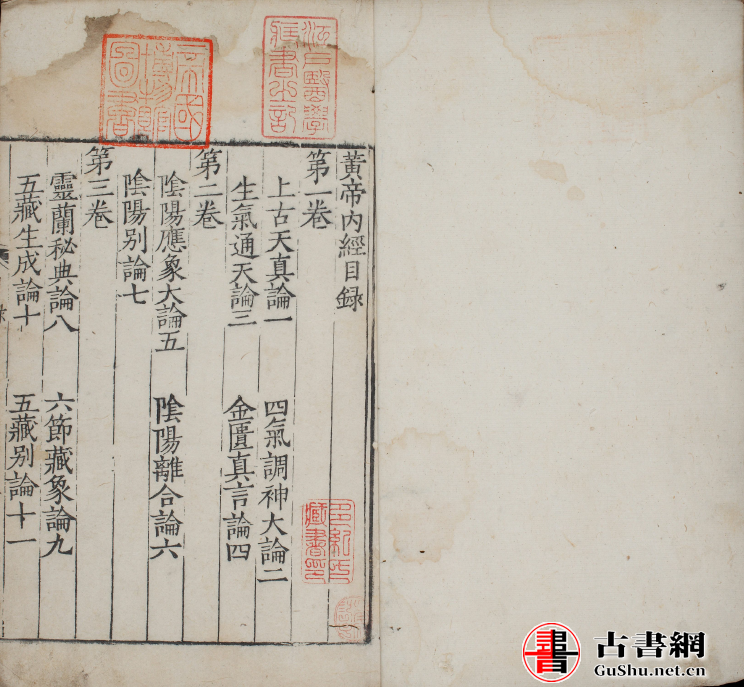 黄帝内經目録
第一卷
上古天真論一 四氣調神大論二
生氣通天論三 金匱真言論四
第二卷
陰陽應象大論五 陰陽離合論六
陰陽别論七
第三卷
靈蘭秘典論八 六節藏象論九
五藏生成論十 五藏别論十一
江戸醫學
藏書之記
帝國
博物館
圖書
藏書印
書
古書網
GuShu.net.cn